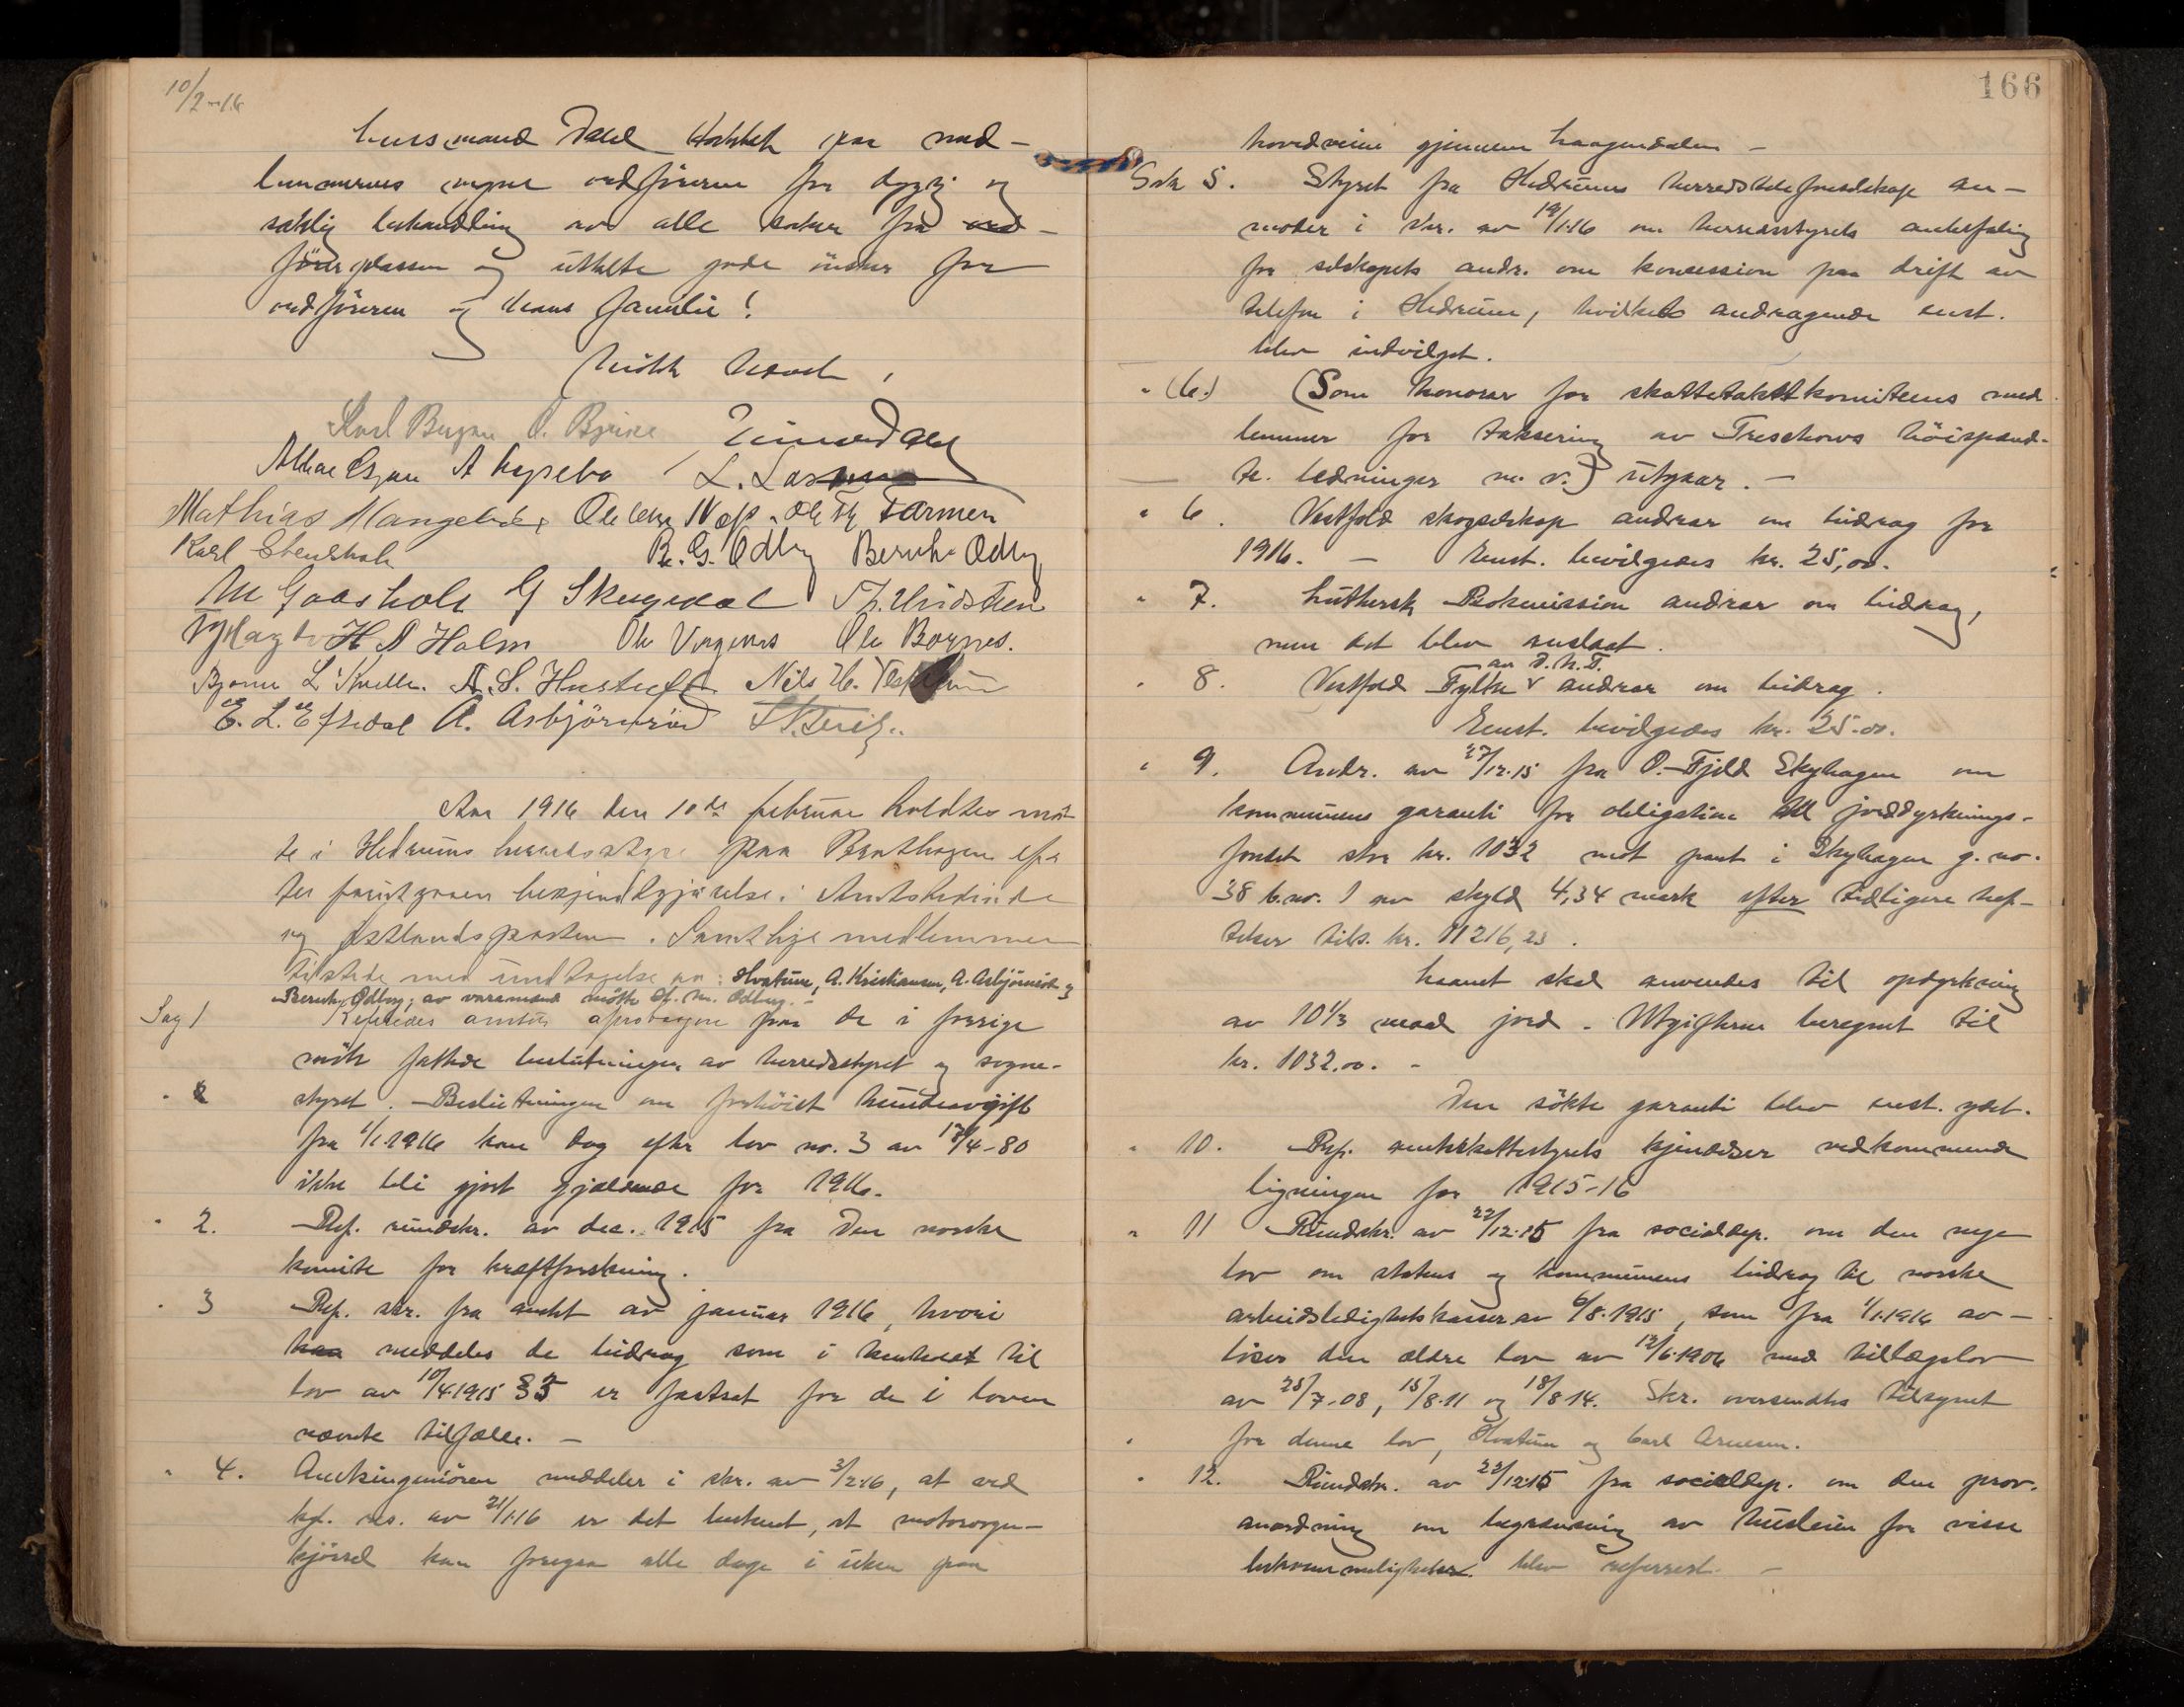 10/2-16
mand takket paa med-
lemmernes vegne ordföreren for dygtig og
saklig behandling av alle saker fra ord-
förerplassen og uttalte gode önsker for
ordföreren og hans familie!
Mötet hævet,
Karl O. Bjerke
L.
Mathias Ole Th Farmen
Karl R. G. Odberg Bernh. Odberg
M Gaasholt G Skugedal Th.
H A Holm Ole Ole Bornes.
Bjarne L A. S. Nils H.
E. L. A. Asbjörnröd
Aar 1916 den 10de februar holdtes mö-
te i Hedrums herredsstyre paa efter
ter forutgaaende bekjendtgjörelse i Amtstidende
og Östlandsposten. Samtlige medlemmer
tilstede med undtagelse av: Hvatum, A. Kristiansen, A. Asbjörnröd og
Bernh. Odberg; av varamænd mötte M. Odberg. -
Sag 1 Refereredes amtets approbasjon paa de i forrige
möte fattede beslutninger av herredsstyret og sogne-
styret. - Beslutningen om forhöiet hundeavgift
fra 1/1 1916 kan dog efter lov no. 3 av 17/4-80
ikke bli gjort gjældende for 1916.
" 2. Ref. rundskr. av dec. 1915 fra Den norske
komite for kræftforskning.
" 3 Ref. skr. fra amtet av januar 1916, hvori
meddeles de bidrag som i henhold til
lov av 10/4 1915 § 5 er fastsat for de i loven
nævnte tilfælle. -
" 4. Amtsingeniören meddeler i skr. av 3/2 16, at ved
kgl. res. av 21/1 16 er det bestemt, at motorvogn-
kjörsel kan foregaa alle dage i uken paa
166
hovedveien gjennem Laagendalen -
Sak 5. Styret for Hedrums herredstelefonselskap an-
moder i skr. av 19/1 16 om herredsstyrets anbefaling
for selskapets andr. om konsession paa drift av
telefon i Hedrum, hvilket andragende enst.
blev indvilget.
" (6.) (Som honorar for skattetakstkomiteens med-
lemmer for taksering av Treschows höispænd-
te ledninger m. v.) utgaar. -
" 6. Vestfold skogselskap andrar om bidrag for
1916. - Enst. bevilgedes kr. 25,00.
" 7. Luthersk Bokmission andrar om bidrag,
men det blev avslaat.
" 8. Vestfold Fylke av D.N.T. andrar om bidrag.
Enst. bevilgedes kr. 25.00.
" 9. Andr. av 27/12.15 fra O. Fjeld Skyhagen om
kommunens garanti for obligation til jorddyrknings-
fondet stor kr. 1032 mot pant i Skyhagen g.no.
38 b.no. 1 av skyld 4,34 mark efter tidligere hef-
telser tils. kr. 11216,23.
Laanet skal anvendes til opdyrkning
av 10 1/3 maal jord. - Utgifterne beregnet til
kr. 1032.00. -
Den sökte garanti blev enst. ydet.
" 10. Ref. amtskattestyrets kjendelser vedkommende
ligningen for 1915-16
" 11 Rundskr. av 22/12.15 fra socialdep. om den nye
lov om statens og kommunens bidrag til norske
arbeidsledighetskasser av 6/8.1915, som fra 1/1.1916 av-
löser den ældre lov av 12/6 1906 med tillægslov
av 25/7-08, 15/8.11 og 18/8 14. Skr. oversendtes tilsynet
for denne lov, Hvatum og Carl Arnesen.
" 12. Rundskr. av 22/12 15 fra socialdep. om den prov.
anordning om begrænsning av husleien for visse
bekvemmeligheter blev referert. -